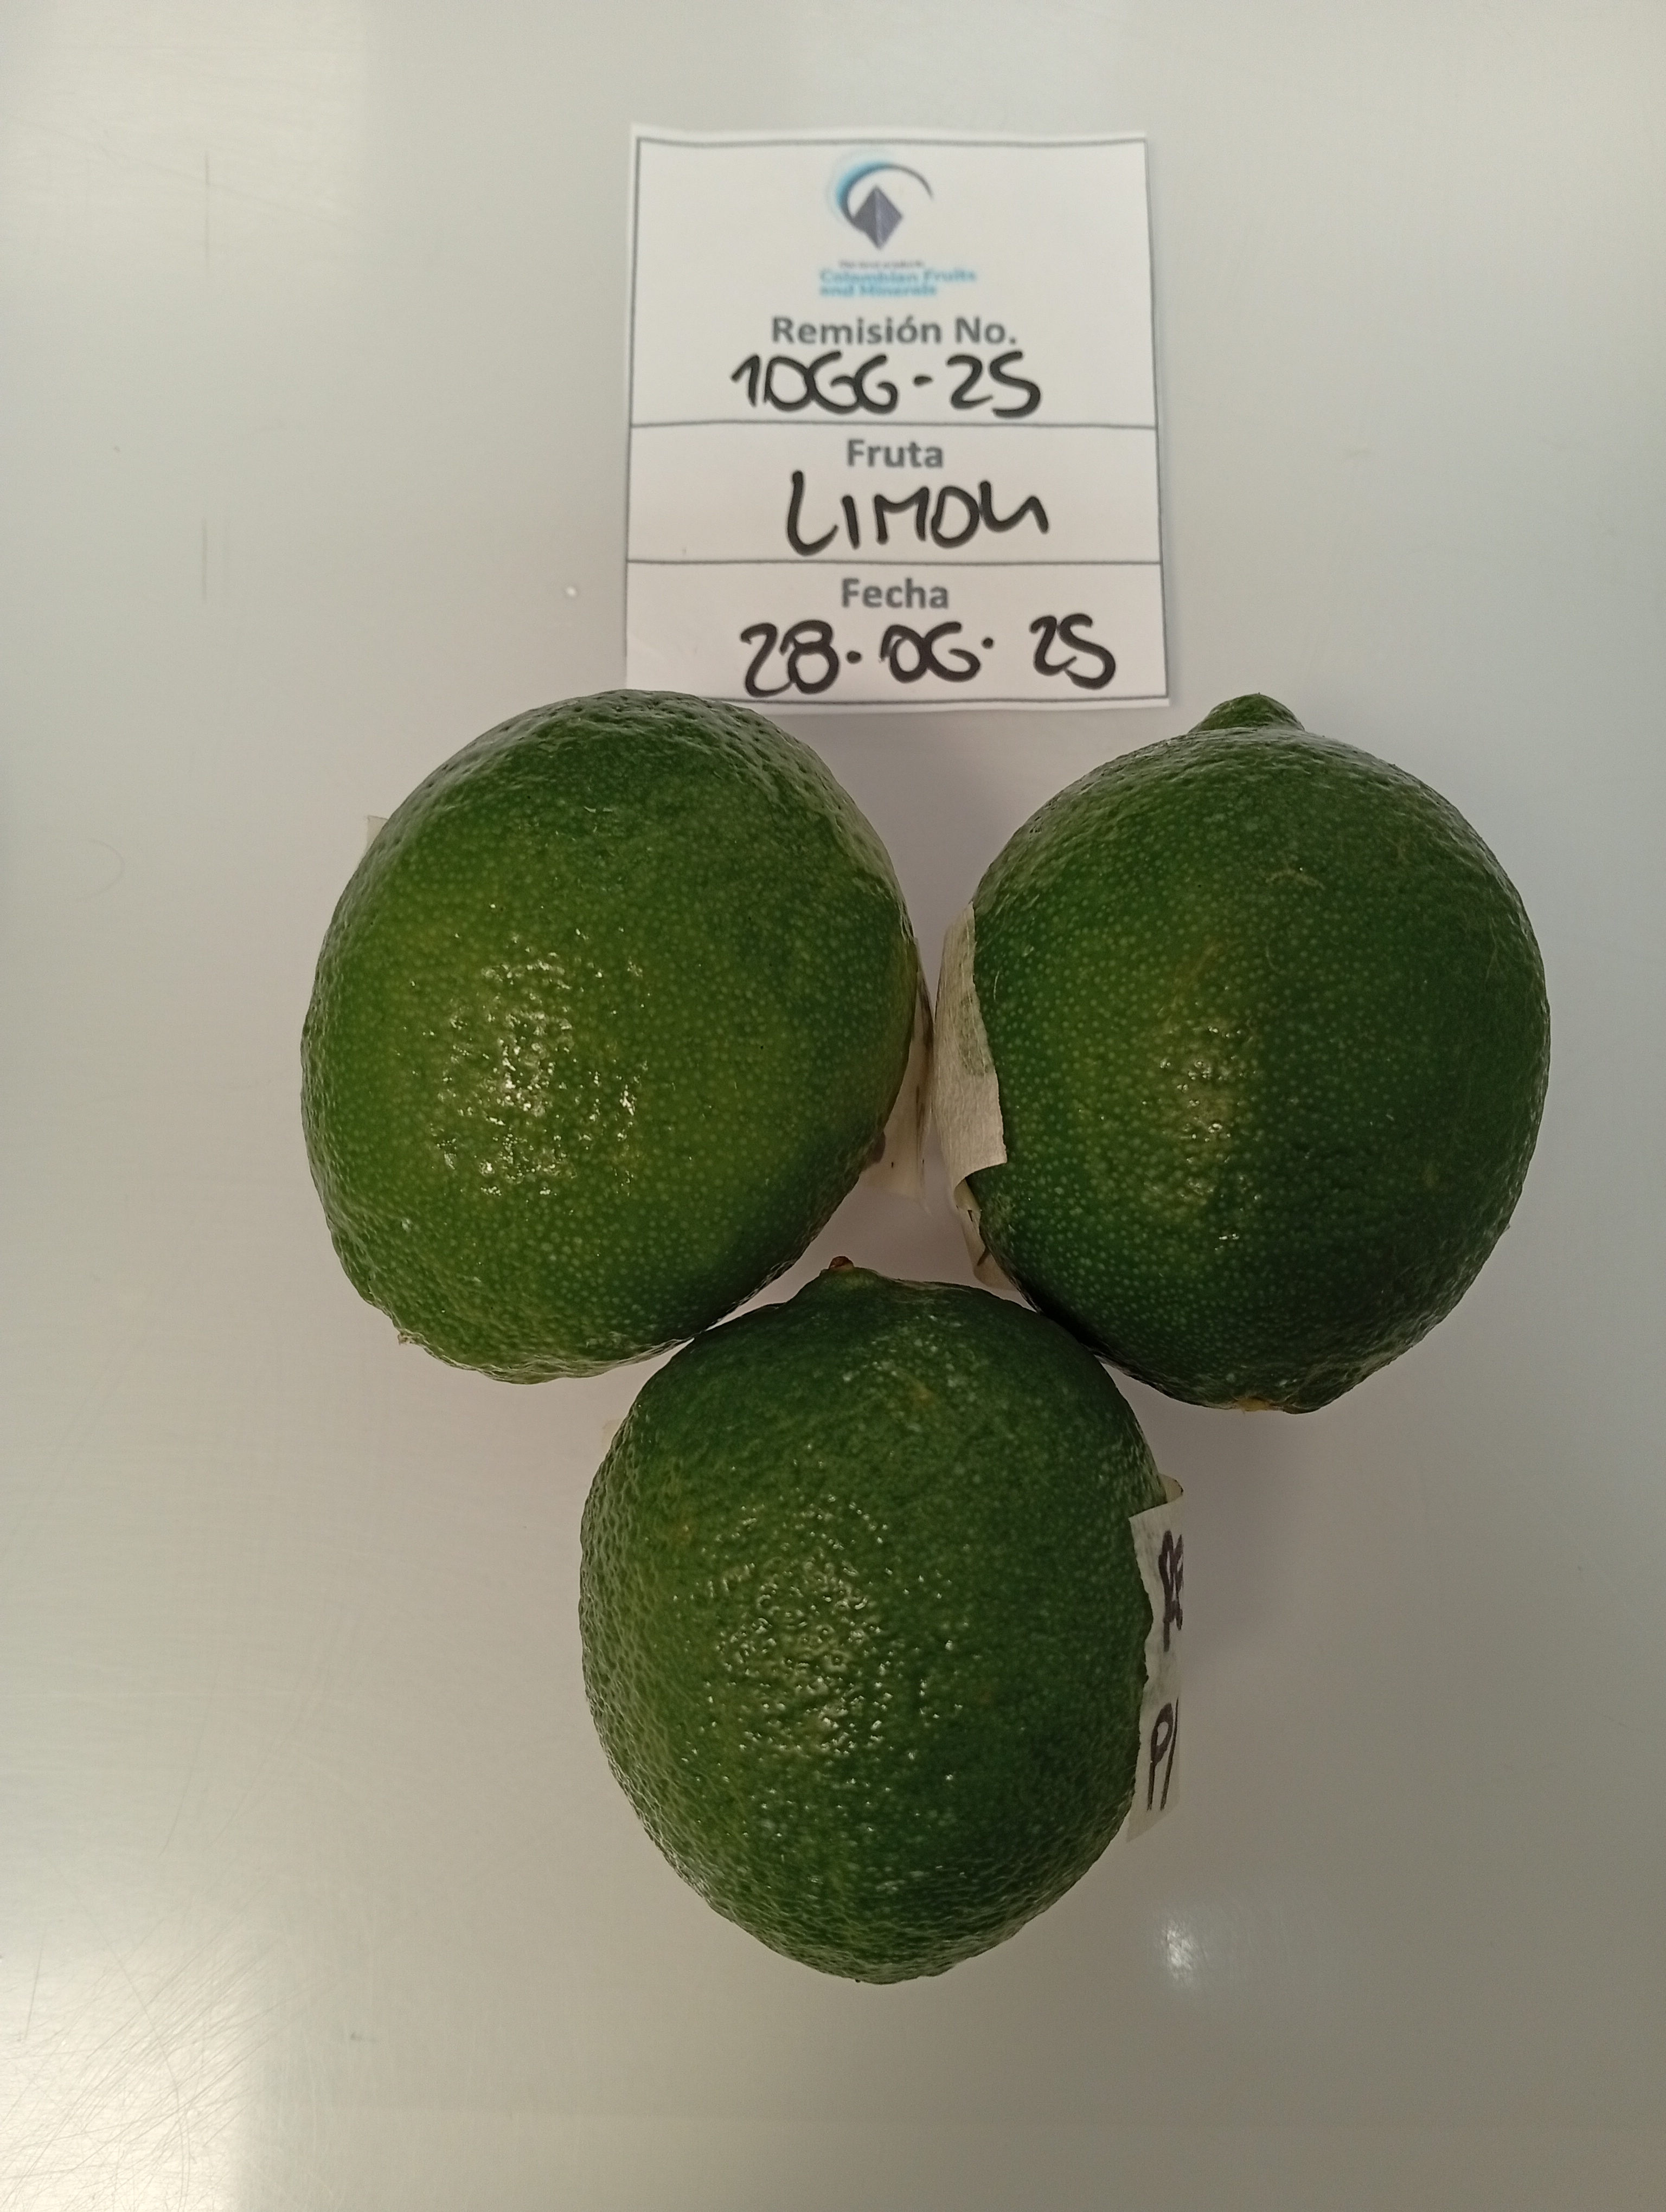 Colombian Fruits
and Minerals
Remisión No.
1066-25
Fruta
LIMON
Fecha
28·06·25
P/